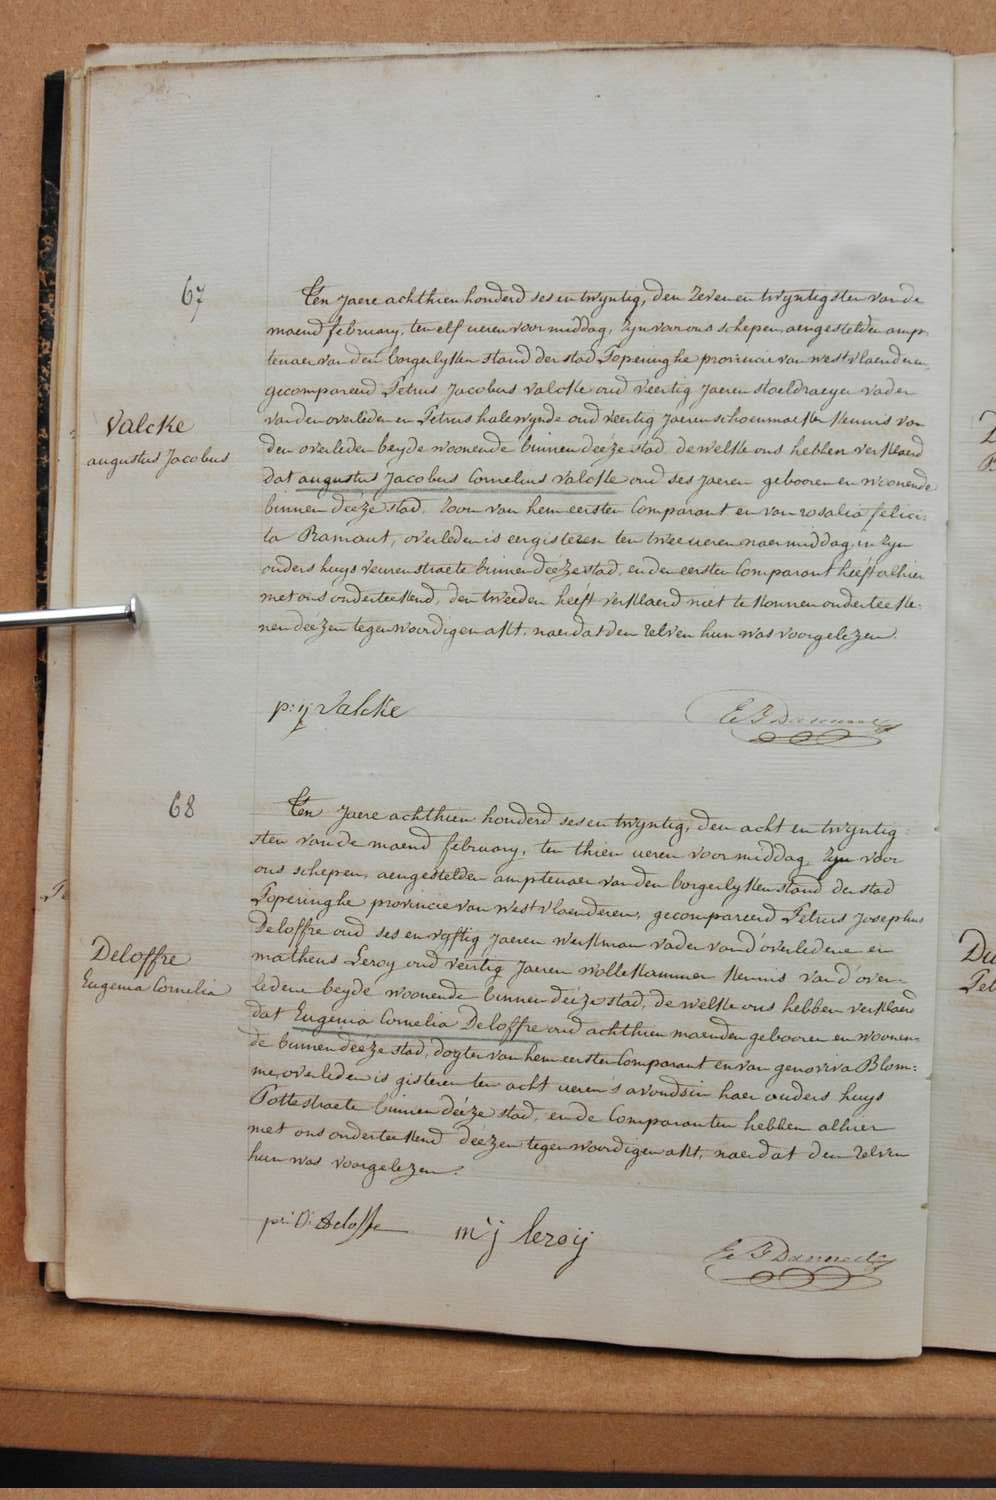 67
Valcke
augustus Jacobus
Ten jaere achthien honderd ses en twyntig, den zeven en twyntigsten van de
maend february, ten elf ueren voormiddag, zyn voor ons schepen, aengestelden amp-
tenaer van den borgerlyken stand der stad Poperinghe provincie van westvlaenderen,
gecompareerd Petrus Jacobus Valcke oud veertig jaeren stoeldraeyer vader
van den overleden en Petrus halewynde oud veertig jaeren schoenmaeker kennis van
den overleden beyde woonende binnen deéze stad, de welke ons hebben verklaerd
dat augustus Jacobus Cornelius Valcke oud ses jaeren gebooren en woonende
binnen deéze stad, zoon van hem eersten Comparant en van rosalia felici-
ta Ramaut, overleden is eergisteren ten twee ueren naermiddag in zyn
ouders huys veurenstraete binnen deéze stad, en den eersten Comparant heeft alhier
met ons onderteekend, den tweeden heeft verklaerd niet te konnen onderteeke-
nen deézen tegenwoordigen akt, naer dat den zelven hun was voorgelezen.
p: ij Valcke
68
Deloffre
Eugenia Cornelia
Ten jaere achthien honderd ses en twyntig, den acht en twyntig-
sten van de maend february, ten thien ueren voormiddag, zyn voor
ons schepen, aengestelden amptenaer van den borgerlyken stand der stad
Poperinghe provincie van westvlaenderen, gecompareerd Petrus Josephus
Deloffre oud ses en vyftig jaeren werkman vader van d'overledene en
matheus Leroy oud veertig jaeren wollekammer kennis van d'over-
ledene beyde woonende binnen deéze stad, de welke ons hebben verklaerd
dat Eugenia Cornelia Deloffre oud achthien maenden gebooren en woonen-
de binnen deéze stad, dogter van hem eersten Comparant en van genoviva Blom-
me, overleden is gisteren ten acht ueren 's avonds in haer ouders huys
Pottestraete binnen deéze stad, en de Comparanten hebben alhier
met ons onderteekend deézen tegenwoordigen akt, naer dat den zelven
hun was voorgelezen.
Deloffre
m j leroij